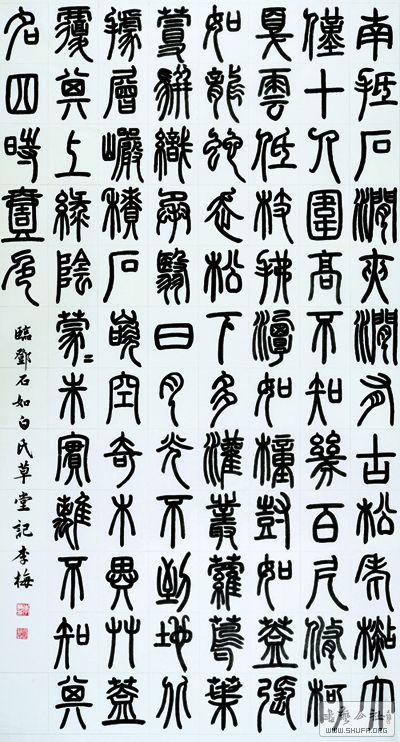 南抵石澗夾澗有古松老檆大
僅十人圍高不知幾百尺修柯
戛雲低枝拂潭如橦尌如蓋張
如龍蛇走松下多灌叢蘿蔦葉
蔓駢織承翳日月光不到地
據層巖積石嵌空奇木異艸蓋
覆其上綠陰蒙〻朱實離不知其
名四時壹色
臨鄧石如白氏草堂記李梅
WWW.SHUFA.ORG